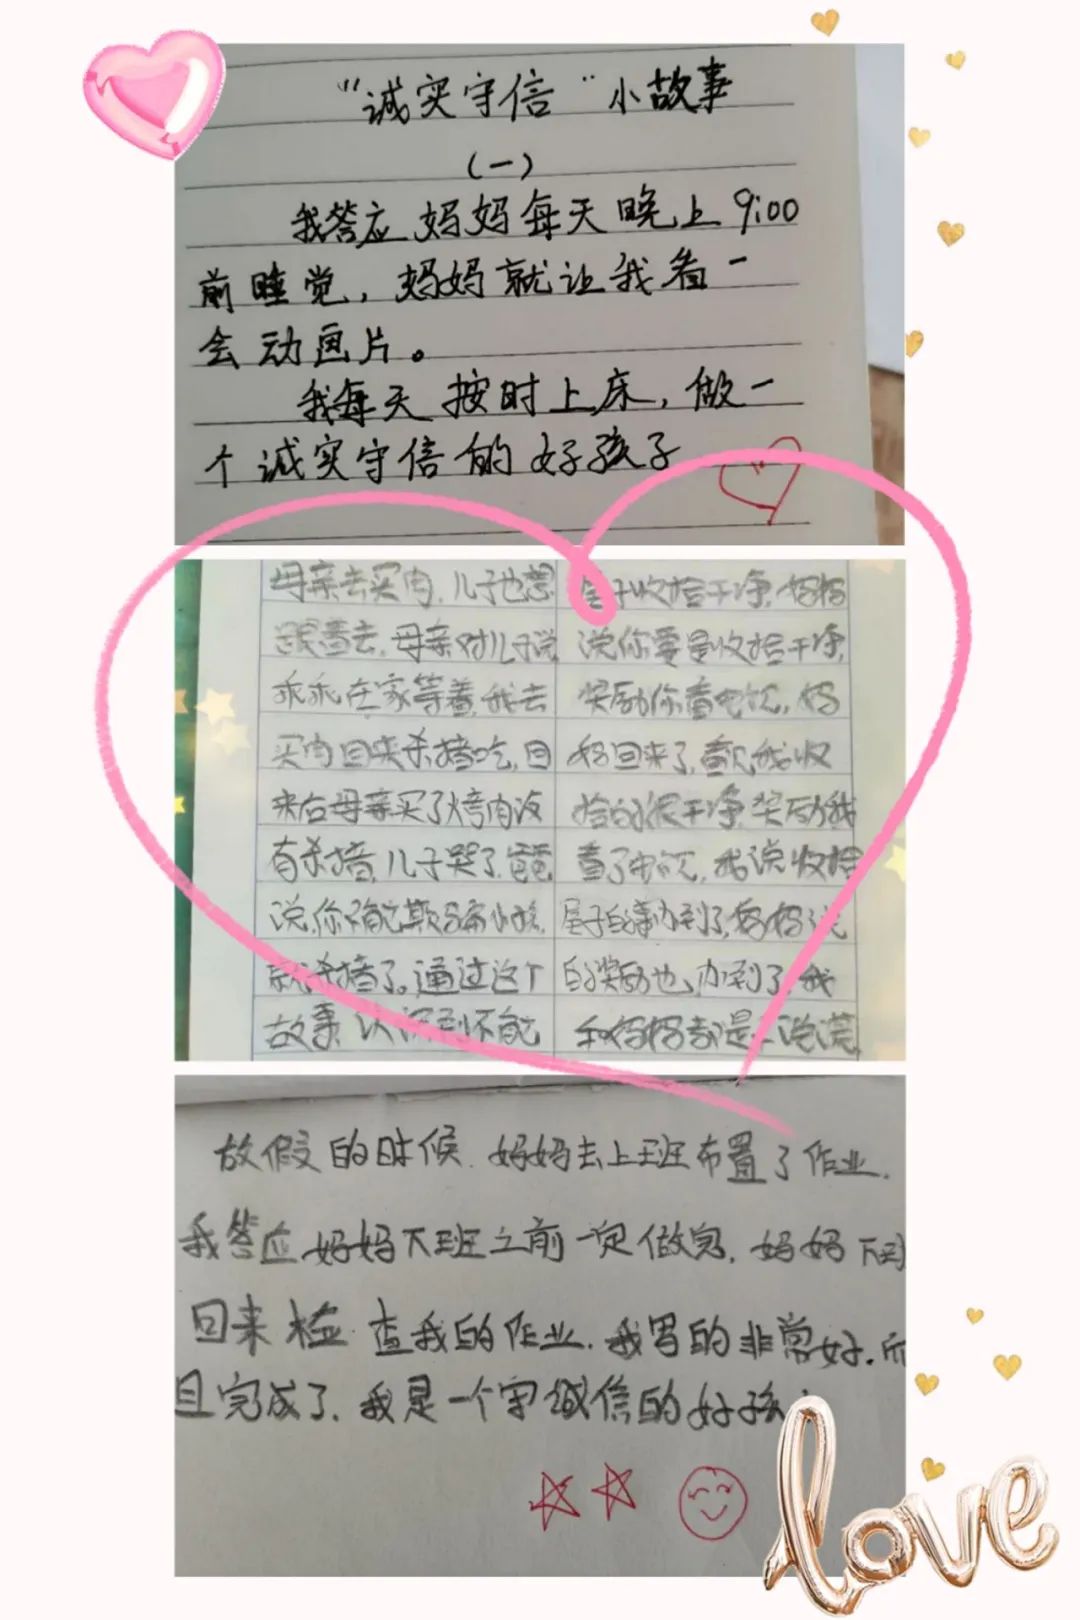 “诚实守信”小故事
(一)
我答应妈妈每天晚上9:00
前睡觉,妈妈就让我看一
会动画片。
我每天按时上床,做一
个诚实守信的好孩子
母亲去买肉,儿子也想
跟着去,母亲对儿子说
乖乖在家等着,我去
买肉回来杀猪吃,回
来后母亲买了烤肉没
有杀猪,儿子哭了,爸爸
说,你不能欺骗小孩,
就杀猪了。通过这个
故事 认识到不能
子收拾干净,妈妈
说你要是收拾干净,
奖励你看电视,妈
妈回来了,看见我收
拾的很干净,奖励我
看了电视,我说收拾
屋子的事办到了,妈妈说
的奖励也办到了,我
和妈妈都是不说谎
放假的时候.妈妈去上班布置了作业.
我答应妈妈下班之前一定做完.妈妈下班
回来检查我的作业.我写的非常好.而
且完成了.我是一个守诚信的好孩
love